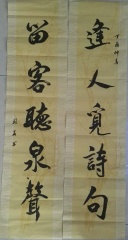 逢人覓詩句
留客聽泉聲